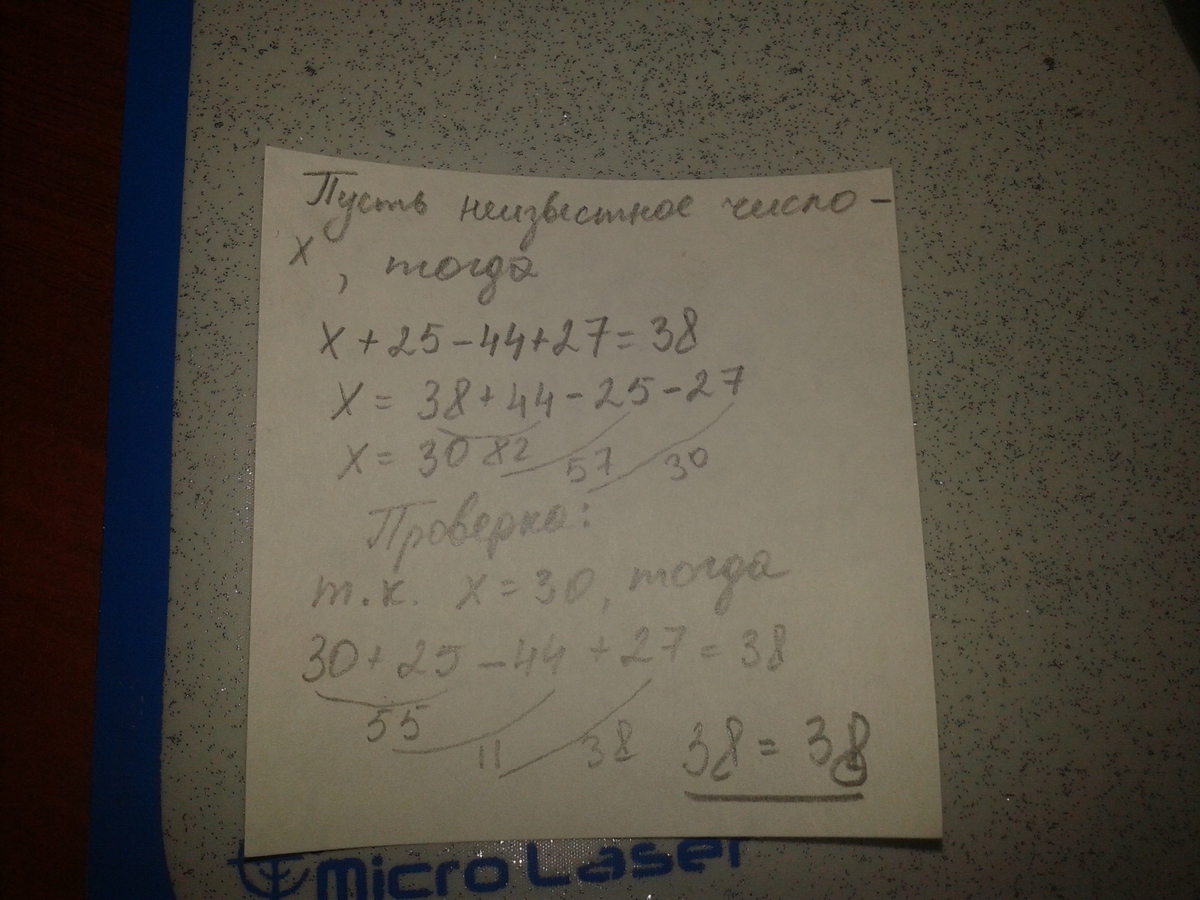 Пусть неизвестное число –
х, тогда
х + 25 – 44 + 27 = 38
х = 38 + 44 – 25 – 27
х = 30 82 57 30
Проверка:
т.к. х = 30, тогда
30 + 25 – 44 + 27 = 38
55 11 38 38 = 38
micro Laser